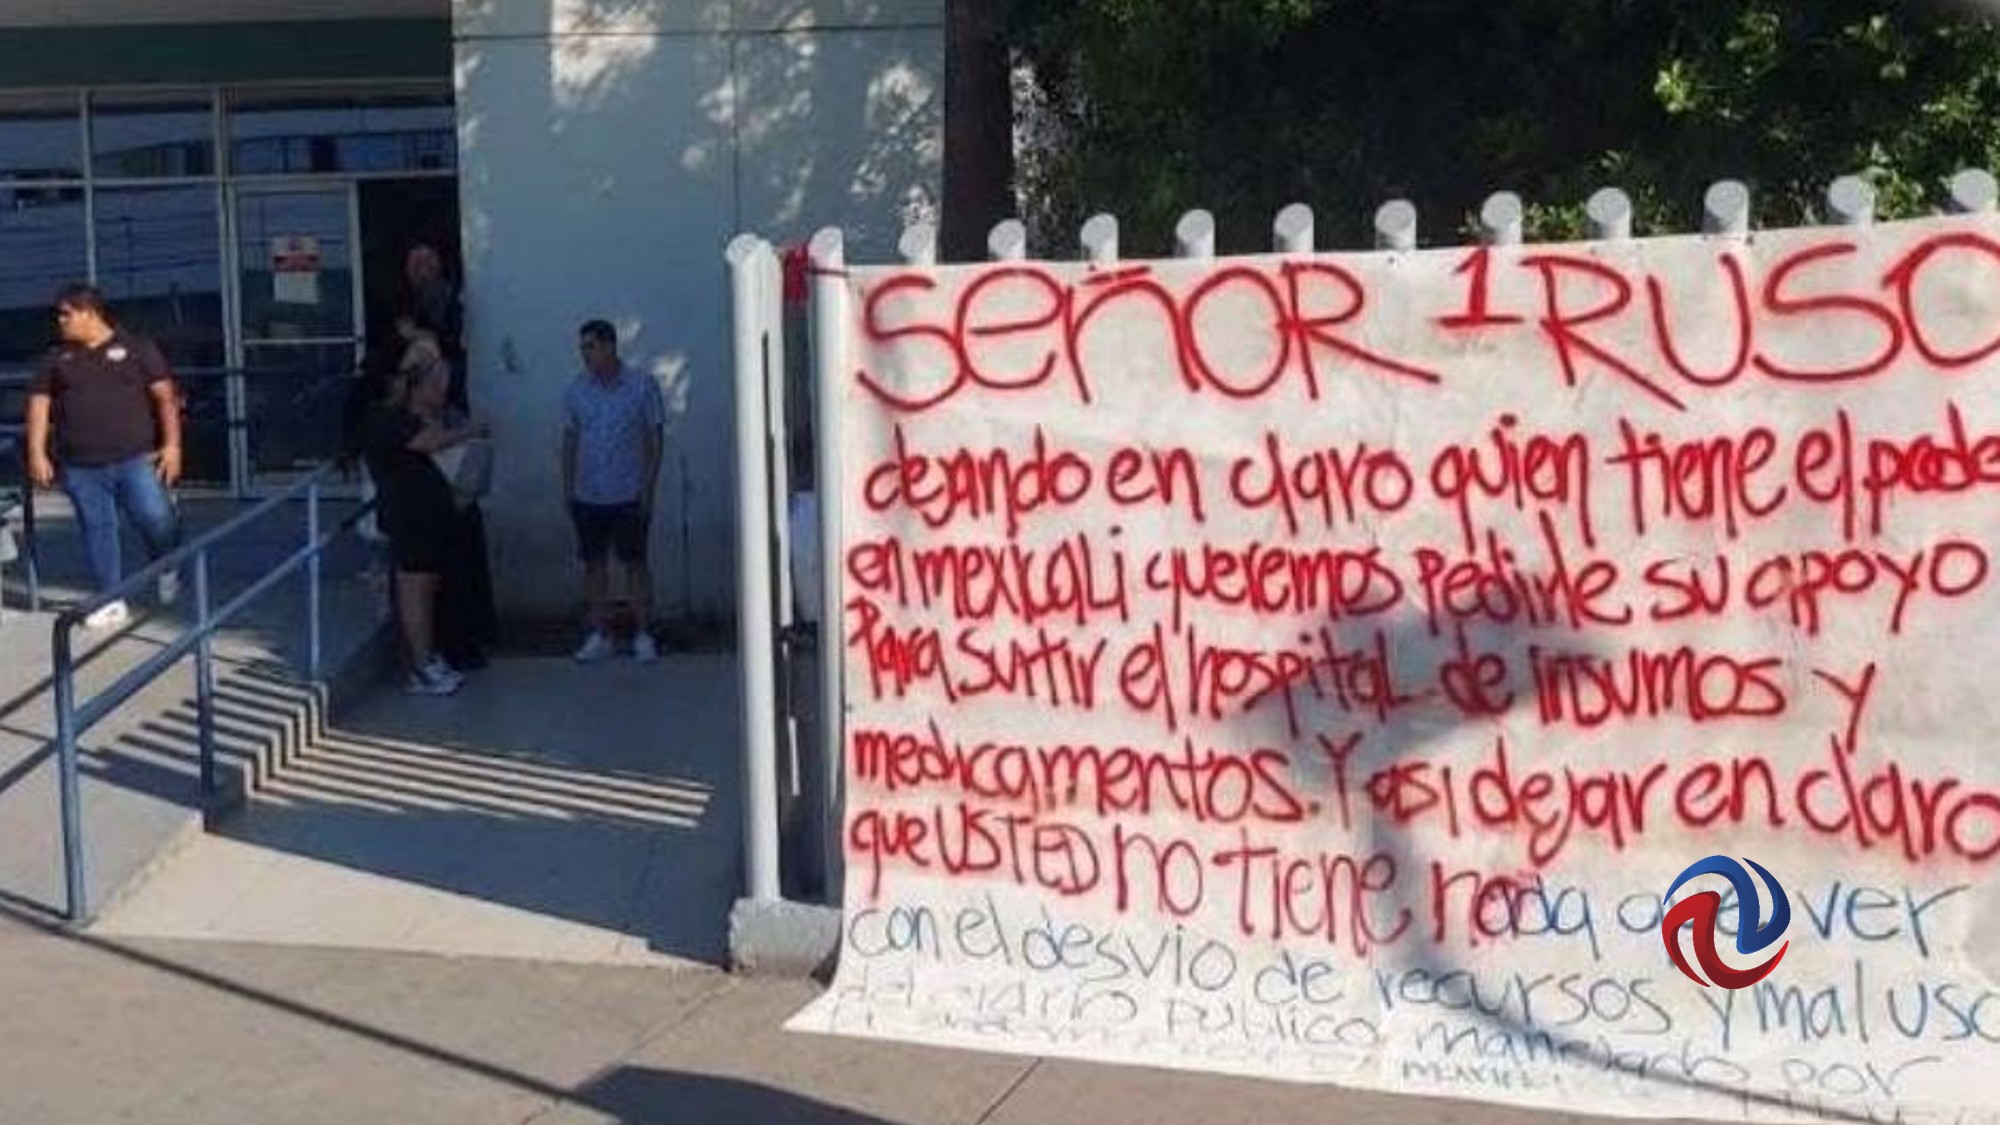 SEÑOR 1 RUSO
dejando en claro quien tiene el pode
en mexicali queremos Pedirle su apoyo
Para surtir el hospital de insumos y
medicamentos. Y asi dejar en claro
que USTED no tiene nada que ver
con el desvio de recursos y mal uso
del erario Publico manejado por